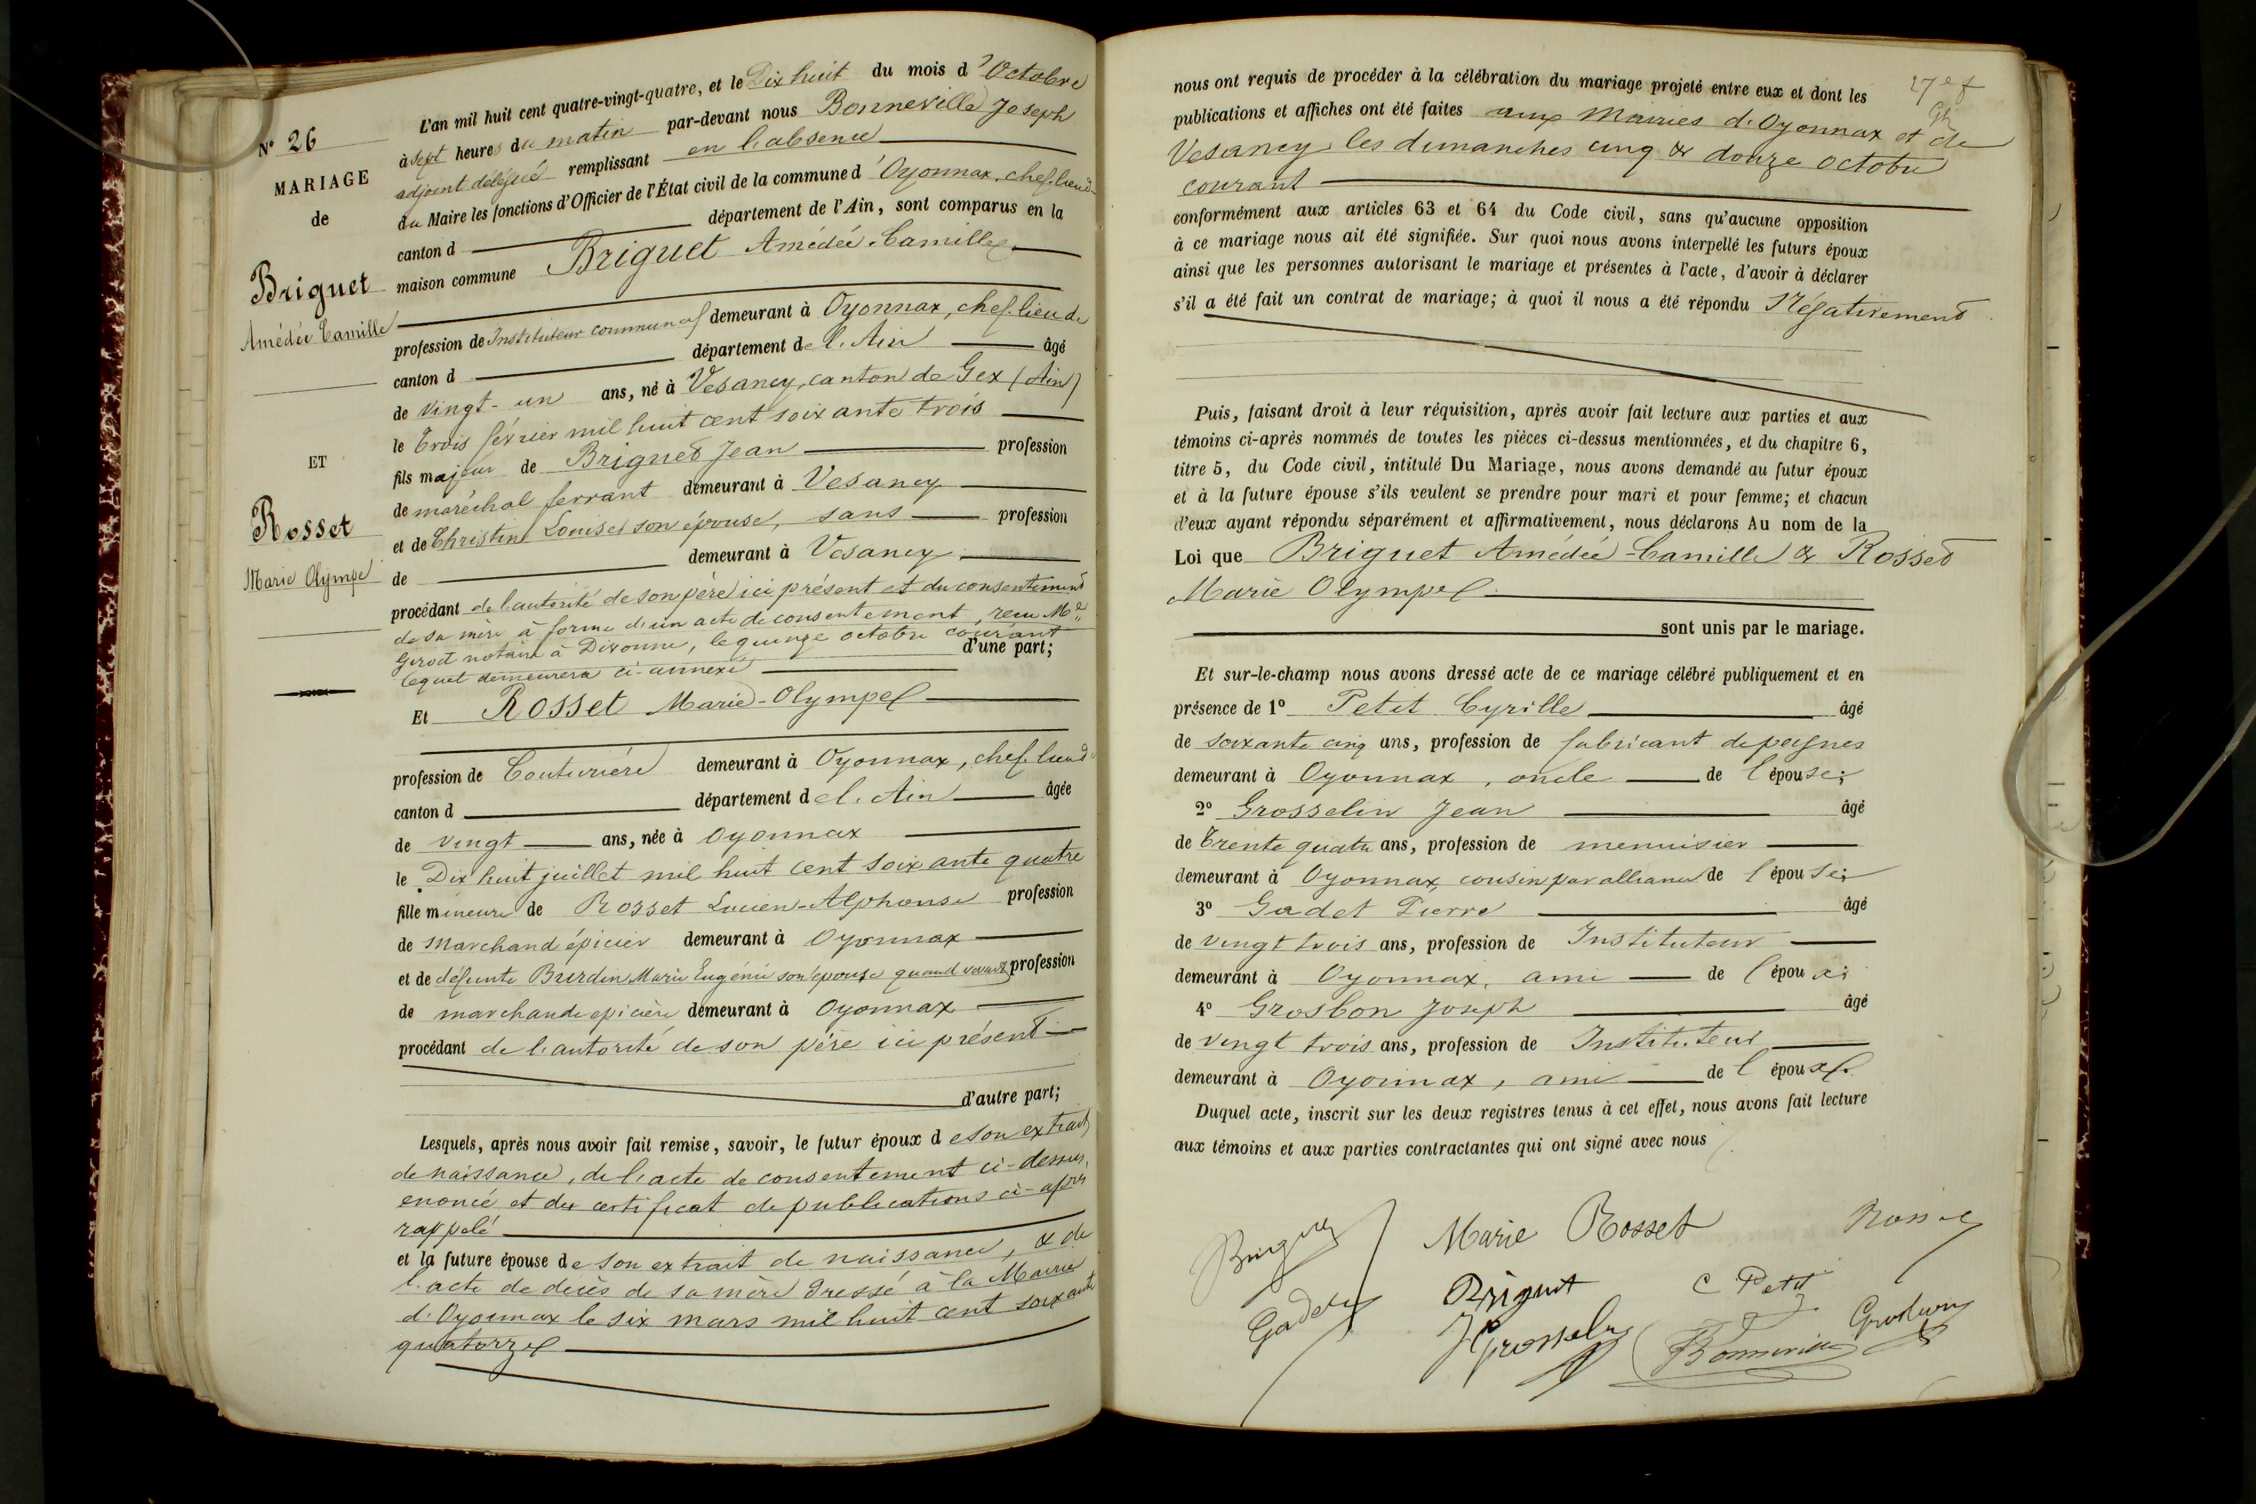 N° 26
MARIAGE
de
Briguet
Amédée Camille
ET
Rosset
Marie Olympe
L'an mil huit cent quatre-vingt-quatre, et le Dix huit du mois d'Octobre
à sept heures du matin par-devant nous Bonneville Joseph
adjoint délégué remplissant en l'absence
du Maire les fonctions d'Officier de l'État civil de la commune d'Oyonnax, chef-lieu de
canton d département de l'Ain, sont comparus en la
maison commune Briguet Amédée-Camille
profession de Instituteur communal demeurant à Oyonnax, chef-lieu de
canton d département de l'Ain âgé
de vingt-un ans, né à Vesancy, canton de Gex (Ain)
le trois février mil huit cent soixante trois
fils majeur de Briguet Jean profession
de maréchal ferrant demeurant à Vesancy
et de Christin Louise son épouse, sans profession
de demeurant à Vesancy
procédant de l'autorité de son père ici présent et du consentement
de sa mère à forme d'un acte de consentement, reçu Me
Girod notaire à Divonne, le quinze octobre courant
lequel demeurera ci-annexé d'une part;
Et Rosset Marie-Olympe
profession de Couturière demeurant à Oyonnax, chef-lieu de
canton d département de l'Ain âgée
de vingt ans, née à Oyonnax
le Dix huit juillet mil huit cent soixante quatre
fille mineure de Rosset Lucien-Alphonse profession
de marchand épicier demeurant à Oyonnax
et de défunte Burdin Marie Eugénie son épouse quand vivait profession
de marchande epicière demeurant à Oyonnax
procédant de l'autorité de son père ici présent
d'autre part;
Lesquels, après nous avoir fait remise, savoir, le futur époux de son extrait
de naissance, de l'acte de consentement ci-dessus,
enoncé et du certificat de publications ci-après
rappelé
et la future épouse de son extrait de naissance, & de
l'acte de décès de sa mère dressé à la Mairie
d'Oyonnax le six mars mil huit cent soixante
quatorze
27e f
nous ont requis de procéder à la célébration du mariage projeté entre eux et dont les
publications et affiches ont été faites aux Mairies d'Oyonnax et de
Vesancy les dimanches cinq & douze octobre
courant
conformément aux articles 63 et 64 du Code civil, sans qu'aucune opposition
à ce mariage nous ait été signifiée. Sur quoi nous avons interpellé les futurs époux
ainsi que les personnes autorisant le mariage et présentes à l'acte, d'avoir à déclarer
s'il a été fait un contrat de mariage; à quoi il nous a été répondu Négativement
Puis, faisant droit à leur réquisition, après avoir fait lecture aux parties et aux
témoins ci-après nommés de toutes les pièces ci-dessus mentionnées, et du chapitre 6,
titre 5, du Code civil, intitulé Du Mariage, nous avons demandé au futur époux
et à la future épouse s'ils veulent se prendre pour mari et pour femme; et chacun
d'eux ayant répondu séparément et affirmativement, nous déclarons Au nom de la
Loi que Briguet Amédée-Camille & Rosset
Marie Olympe
sont unis par le mariage.
Et sur-le-champ nous avons dressé acte de ce mariage célébré publiquement et en
présence de 1° Petit Cyrille âgé
de soixante cinq ans, profession de fabricant de peignes
demeurant à Oyonnax, oncle de l'épouse;
2° Grosselin Jean âgé
de trente quatre ans, profession de menuisier
demeurant à Oyonnax, cousin par alliance de l'épouse;
3° Gadet Pierre âgé
de vingt trois ans, profession de Instituteur
demeurant à Oyonnax, ami de l'époux;
4° Grosbon Joseph âgé
de vingt trois ans, profession de Instituteur
demeurant à Oyonnax, ami de l'époux
Duquel acte, inscrit sur les deux registres tenus à cet effet, nous avons fait lecture
aux témoins et aux parties contractantes qui ont signé avec nous
Briguet Marie Rosset Rosset
Gadet Briguet C Petit
J Grosselin Bonneville Grosbon